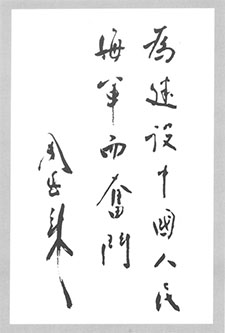 為建設中國人民
海军而奮鬥
周恩来